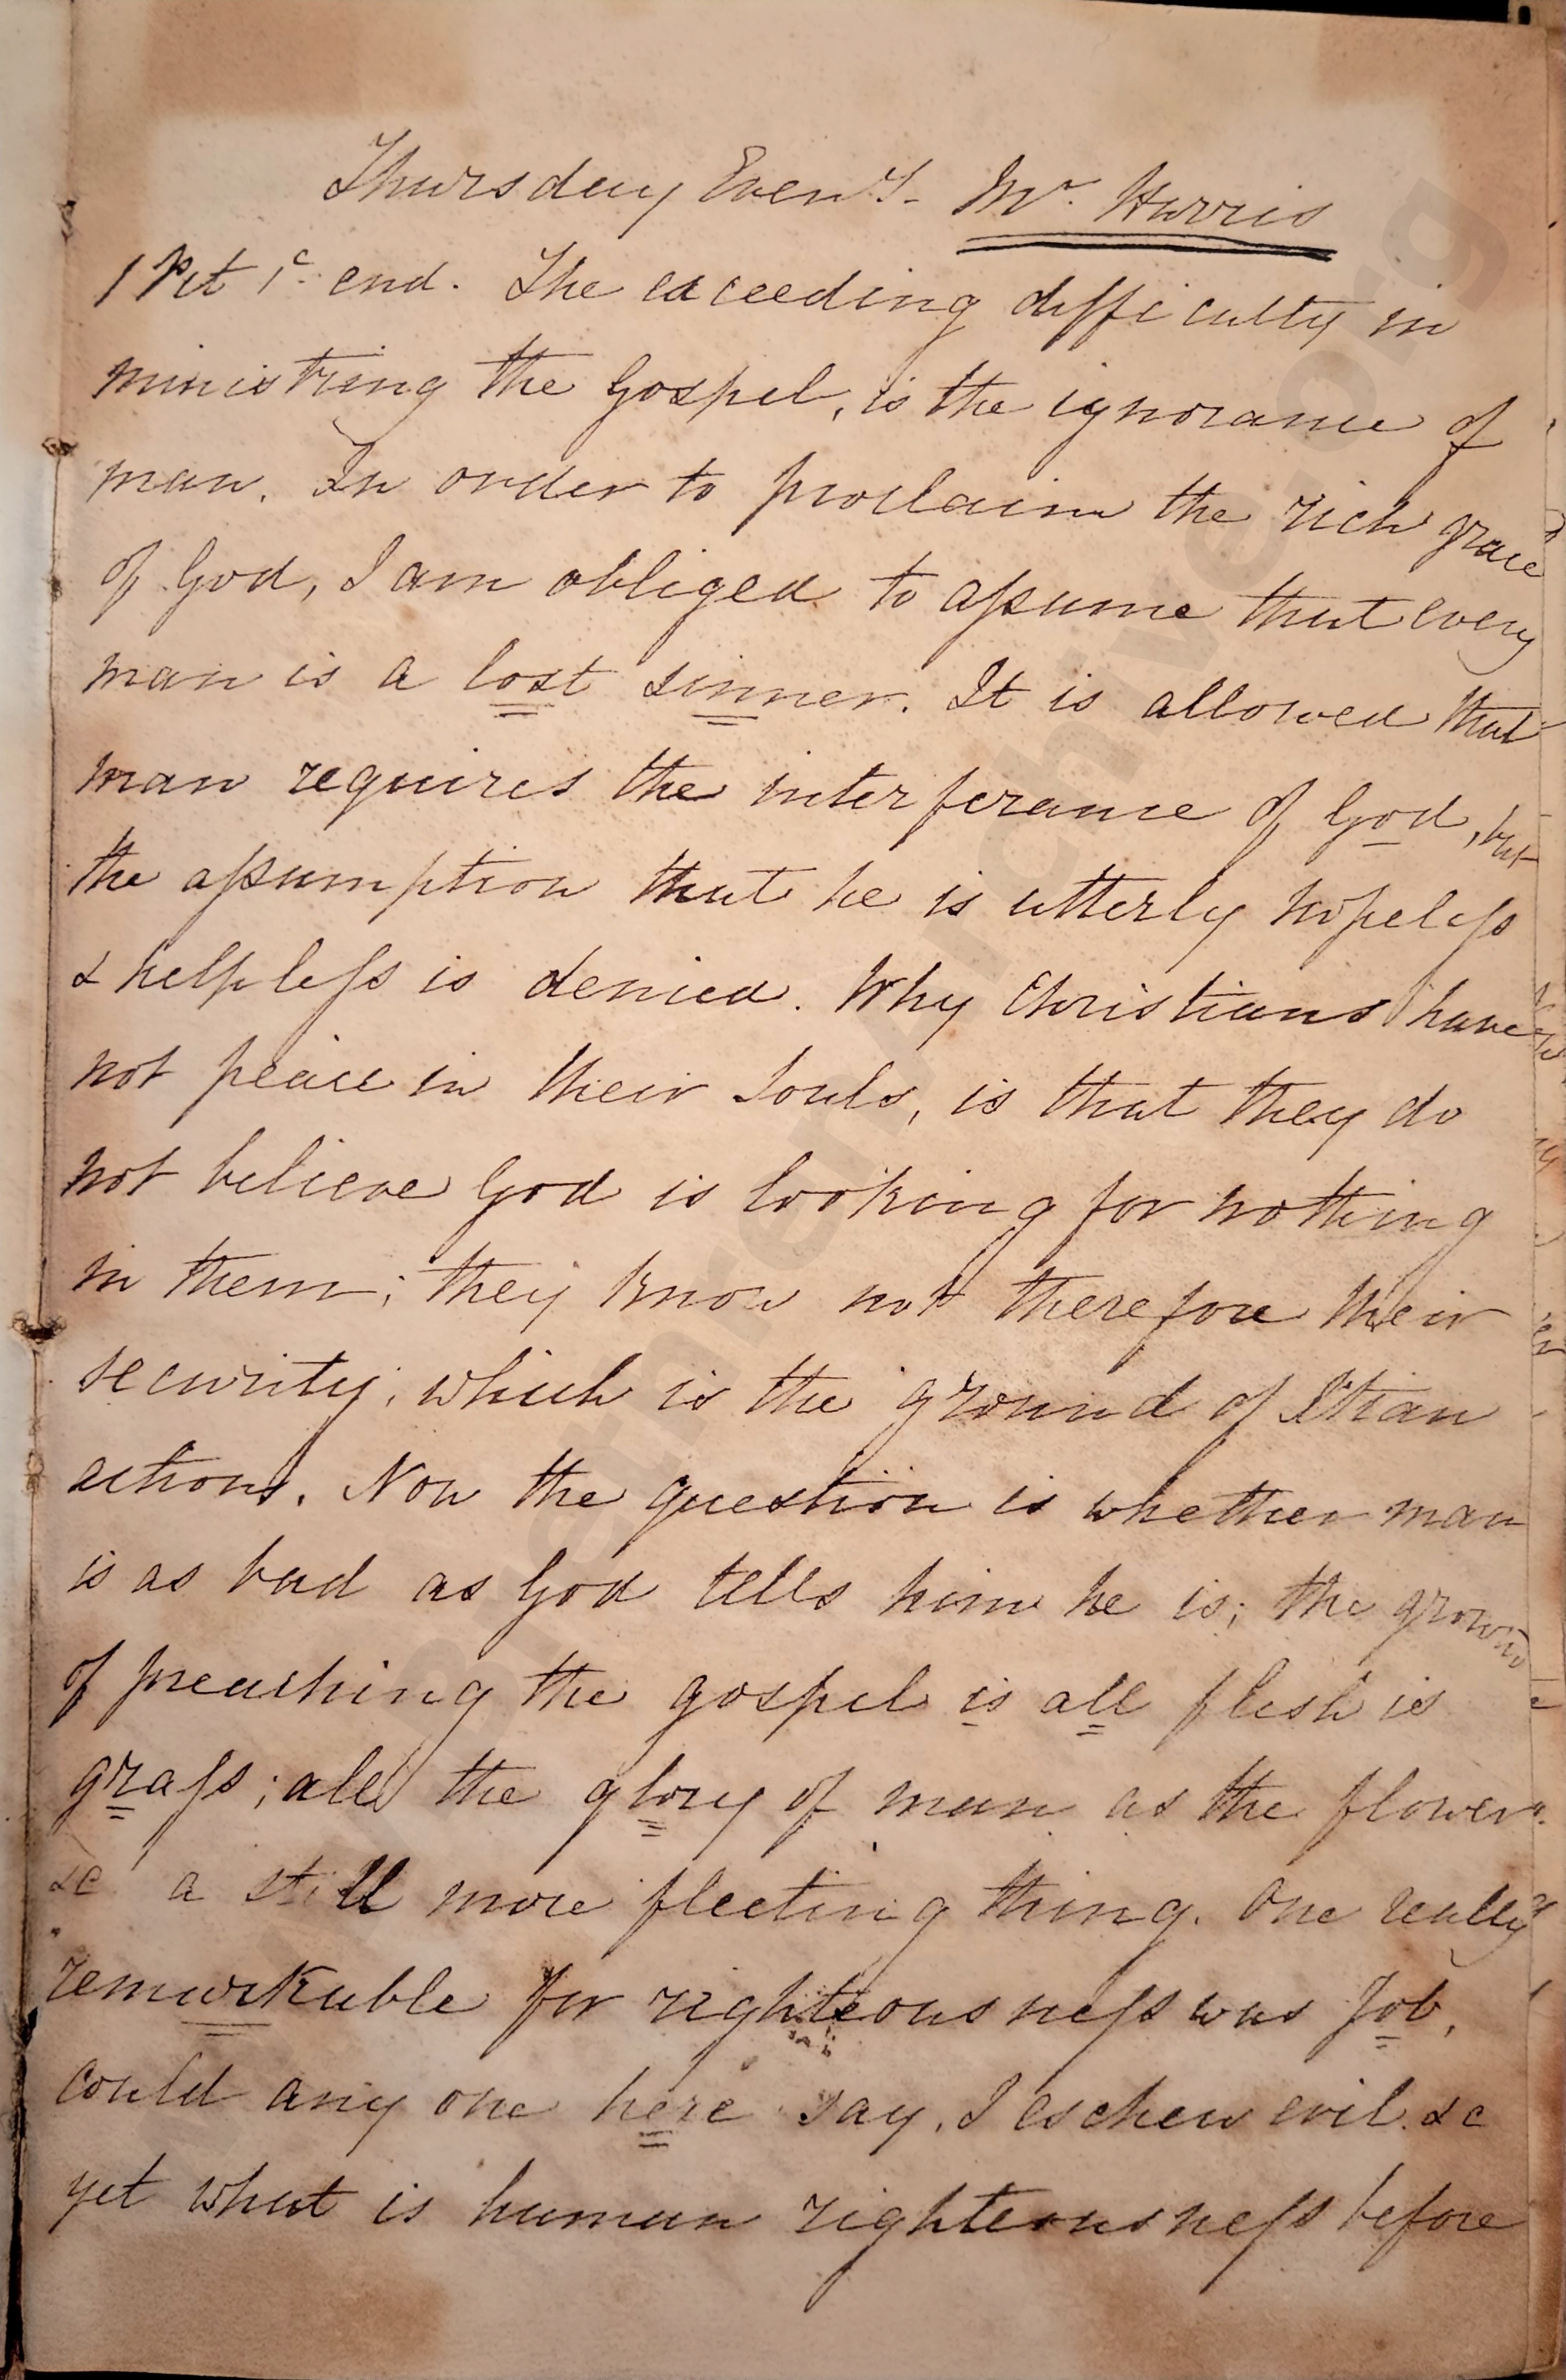 Thursday Eveng. Mr. Harris
1 Pet 1c. end. The exceeding difficulty in
ministring the Gospel, is the ignorance of
man. In order to proclaim the rich grace
of God, I am obliged to assume that every
man is a lost sinner. It is allowed that
man requires the interferance of God, but
the assumption that he is utterly hopeless
& helpless is denied. Why Christians have
not peace in their souls, is that they do
not believe God is looking for nothing
in them; they know not therefore their
security, which is the ground of Xtian
actions. Now the question is whether man
is as bad as God tells him he is; the ground
of preaching the gospel is all flesh is
grass; all the glory of man as the flower
&c a still more fleeting thing. One really
remarkable for righteousness was Job,
could any one here say, I eschew evil &c
yet what is human righteousness before
BrethrenArchive.org